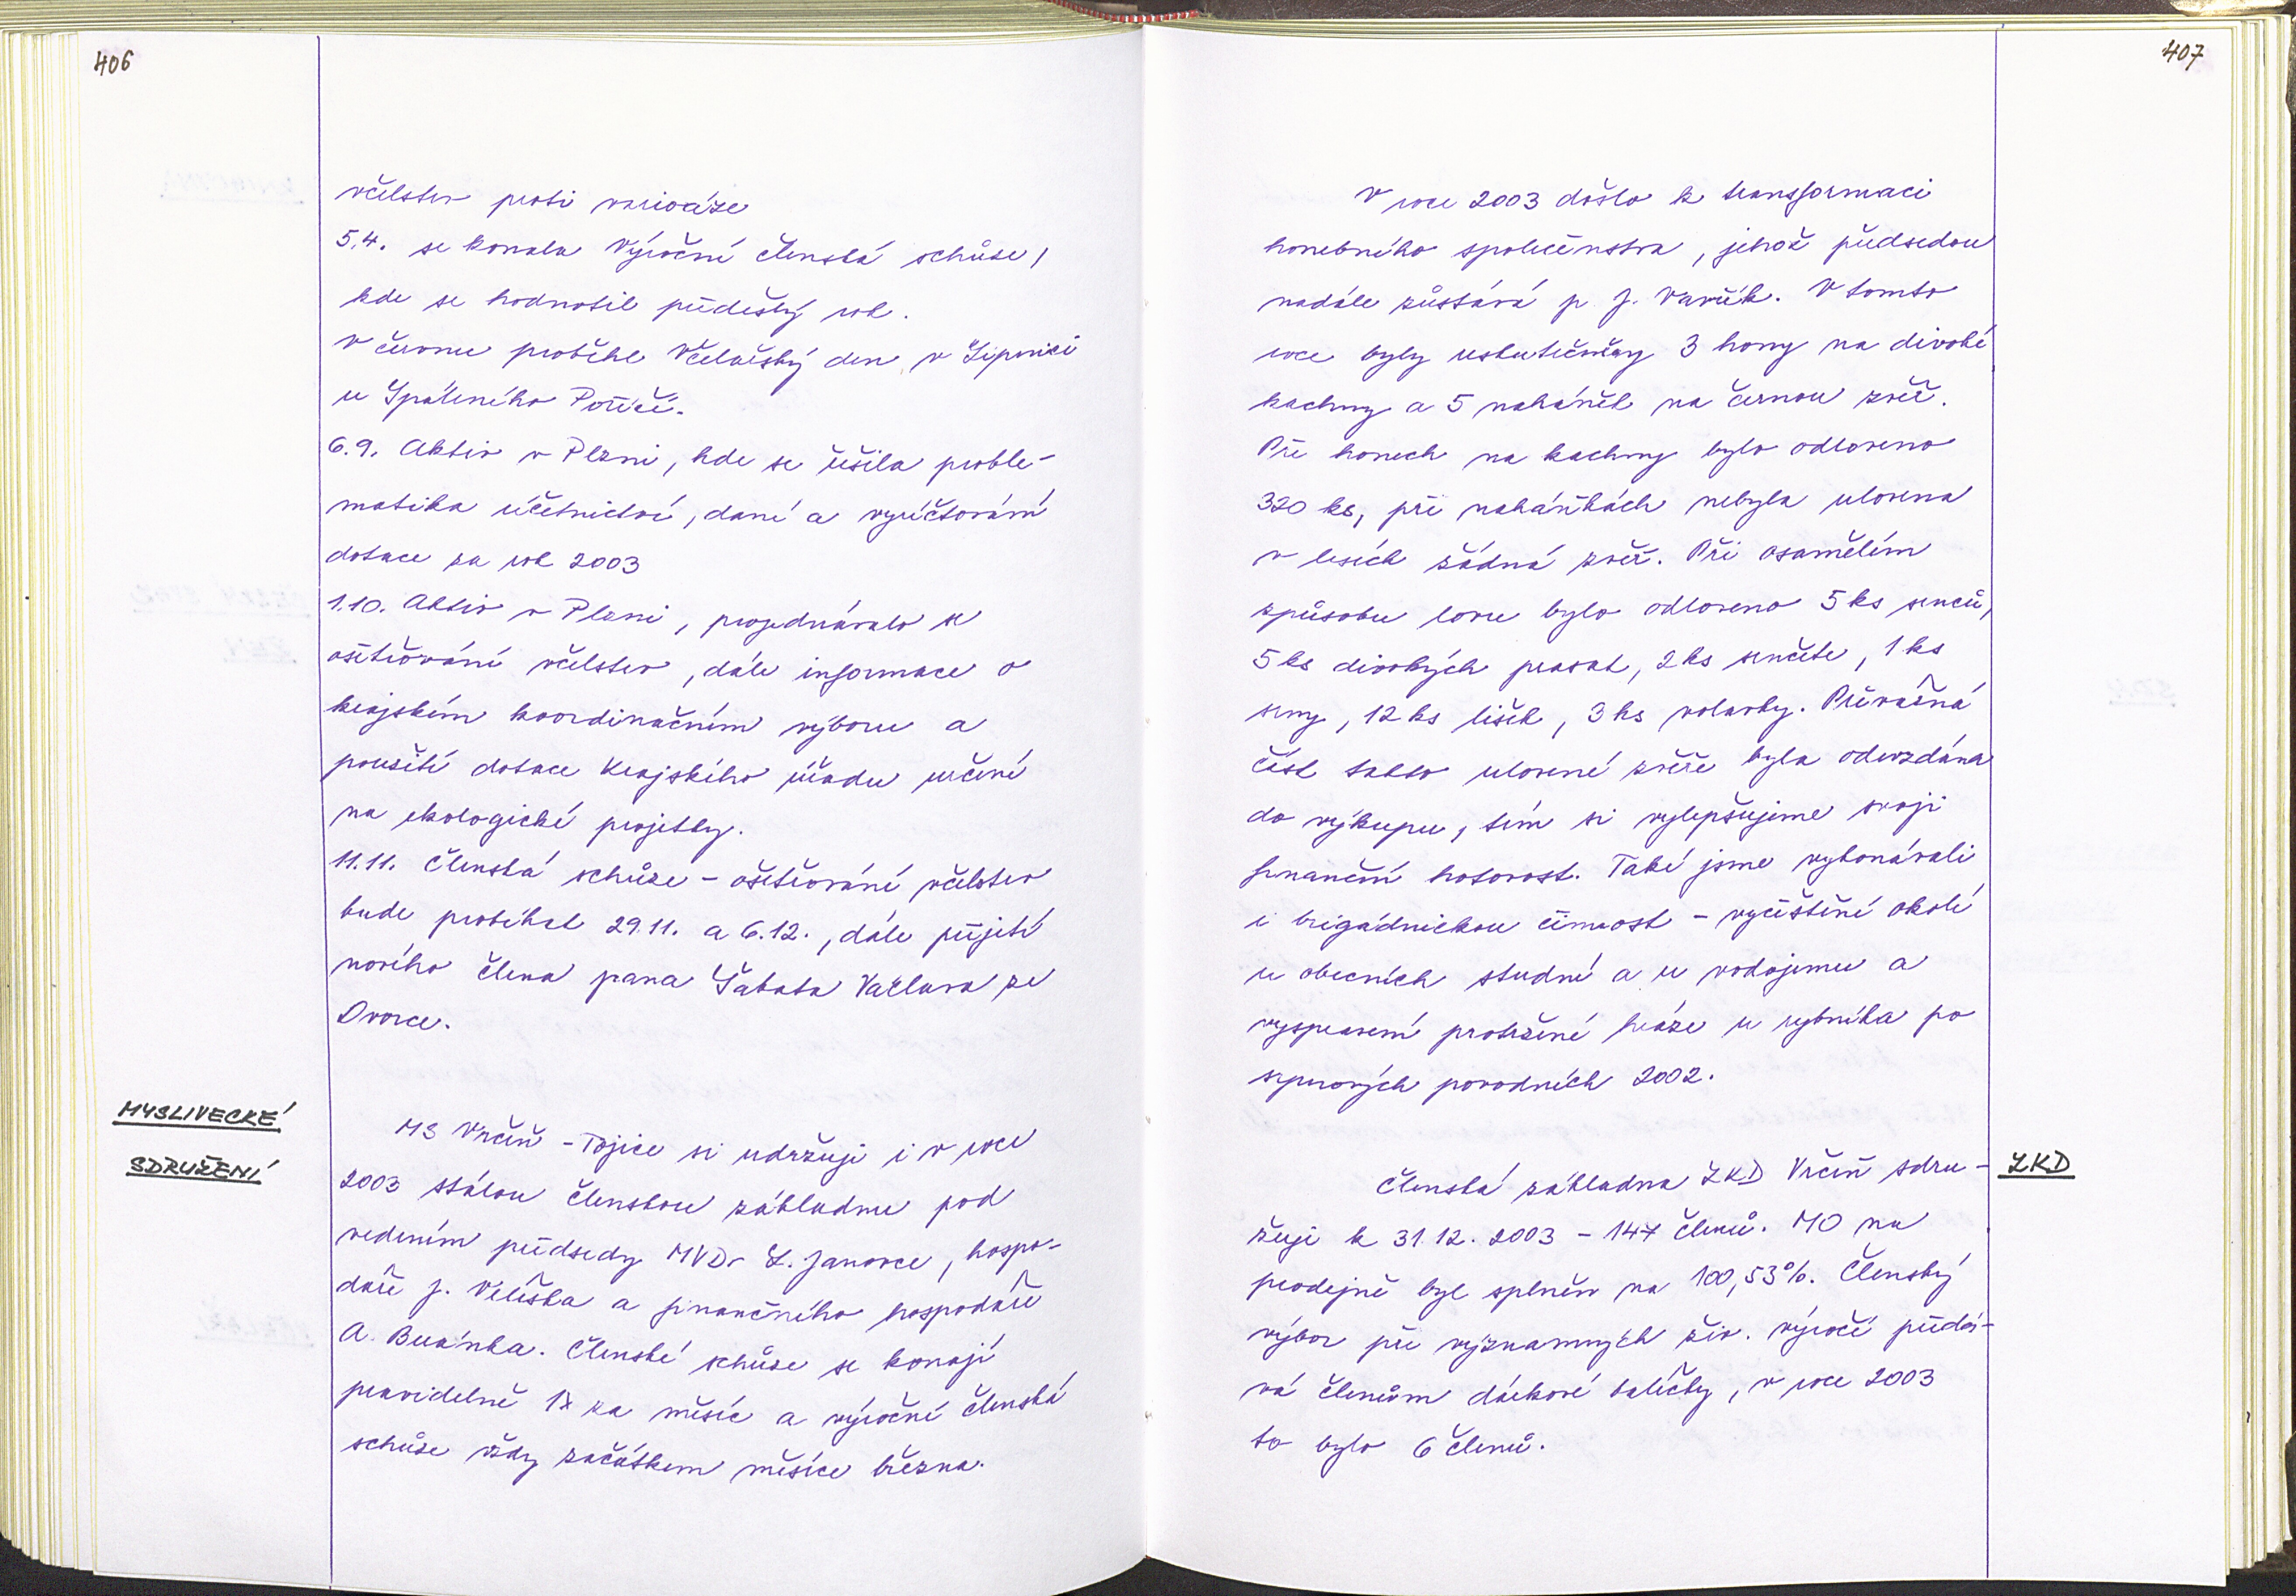 406
včelstev proti varioáze
5.4. se konala Výroční členská schůze,
kde se hodnotil předešlý rok.
V červnu proběhl Včelařský den v Lipnici
u Spáleného Poříčí.
6.9. Aktiv v Plzni, kde se řešila proble-
matika účetnictví, daní a vyúčtování
dotace za rok 2003
1.10. Aktiv v Plzni, projednávalo se
ošetřování včelstev, dále informace o
krajském koordinačním výboru a
použití dotace Krajského úřadu určené
na ekologické projekty.
11.11. Členská schůze - ošetřování včelstev
bude probíhat 29.11. a 6.12., dále přijetí
nového člena pana Šabata Václava ze
Dvorce.
MYSLIVECKÉ
SDRUŽENÍ
MS Vrčeň - Tojice si udržuje i v roce
2003 stálou členskou základnu pod
vedením předsedy MVDr Z. Janovce, hospo-
dáře J. Velíška a finančního hospodáře
A. Beránka. Členské schůze se konají
pravidelně 1x za měsíc a výroční členská
schůze vždy začátkem měsíce března.
407
V roce 2003 došlo k transformaci
honebního společenstva, jehož předsedou
nadále zůstává p. J. Vavřík. V tomto
roce byly uskutečněny 3 hony na divoké
kachny a 5 naháněk na černou zvěř.
Při honech na kachny bylo odloveno
320 ks, při naháňkách nebyla ulovena
v lesích žádná zvěř. Při osamělém
způsobu lovu bylo odloveno 5 ks srnců,
5 ks divokých prasat, 2 ks srnčete, 1 ks
srny, 12 ks lišek, 3 ks volavky. Převážná
část takto ulovené zvěře byla odevzdána
do výkupu, tím si vylepšujeme svoji
finanční hotovost. Také jsme vykonávali
i brigádnickou činnost - vyčištění okolí
u obecních studní a u vodojemu a
vyspravení protržené hráze u rybníka po
srpnových povodních 2002.
ZKD
Členská základna ZKD Vrčeň sdru-
žuje k 31.12.2003 - 147 členů. MO na
prodejně byl splněn na 100,53%. Členský
výbor při významných živ. výročí předá-
vá členům dárkové balíčky, v roce 2003
to bylo 6 členů.